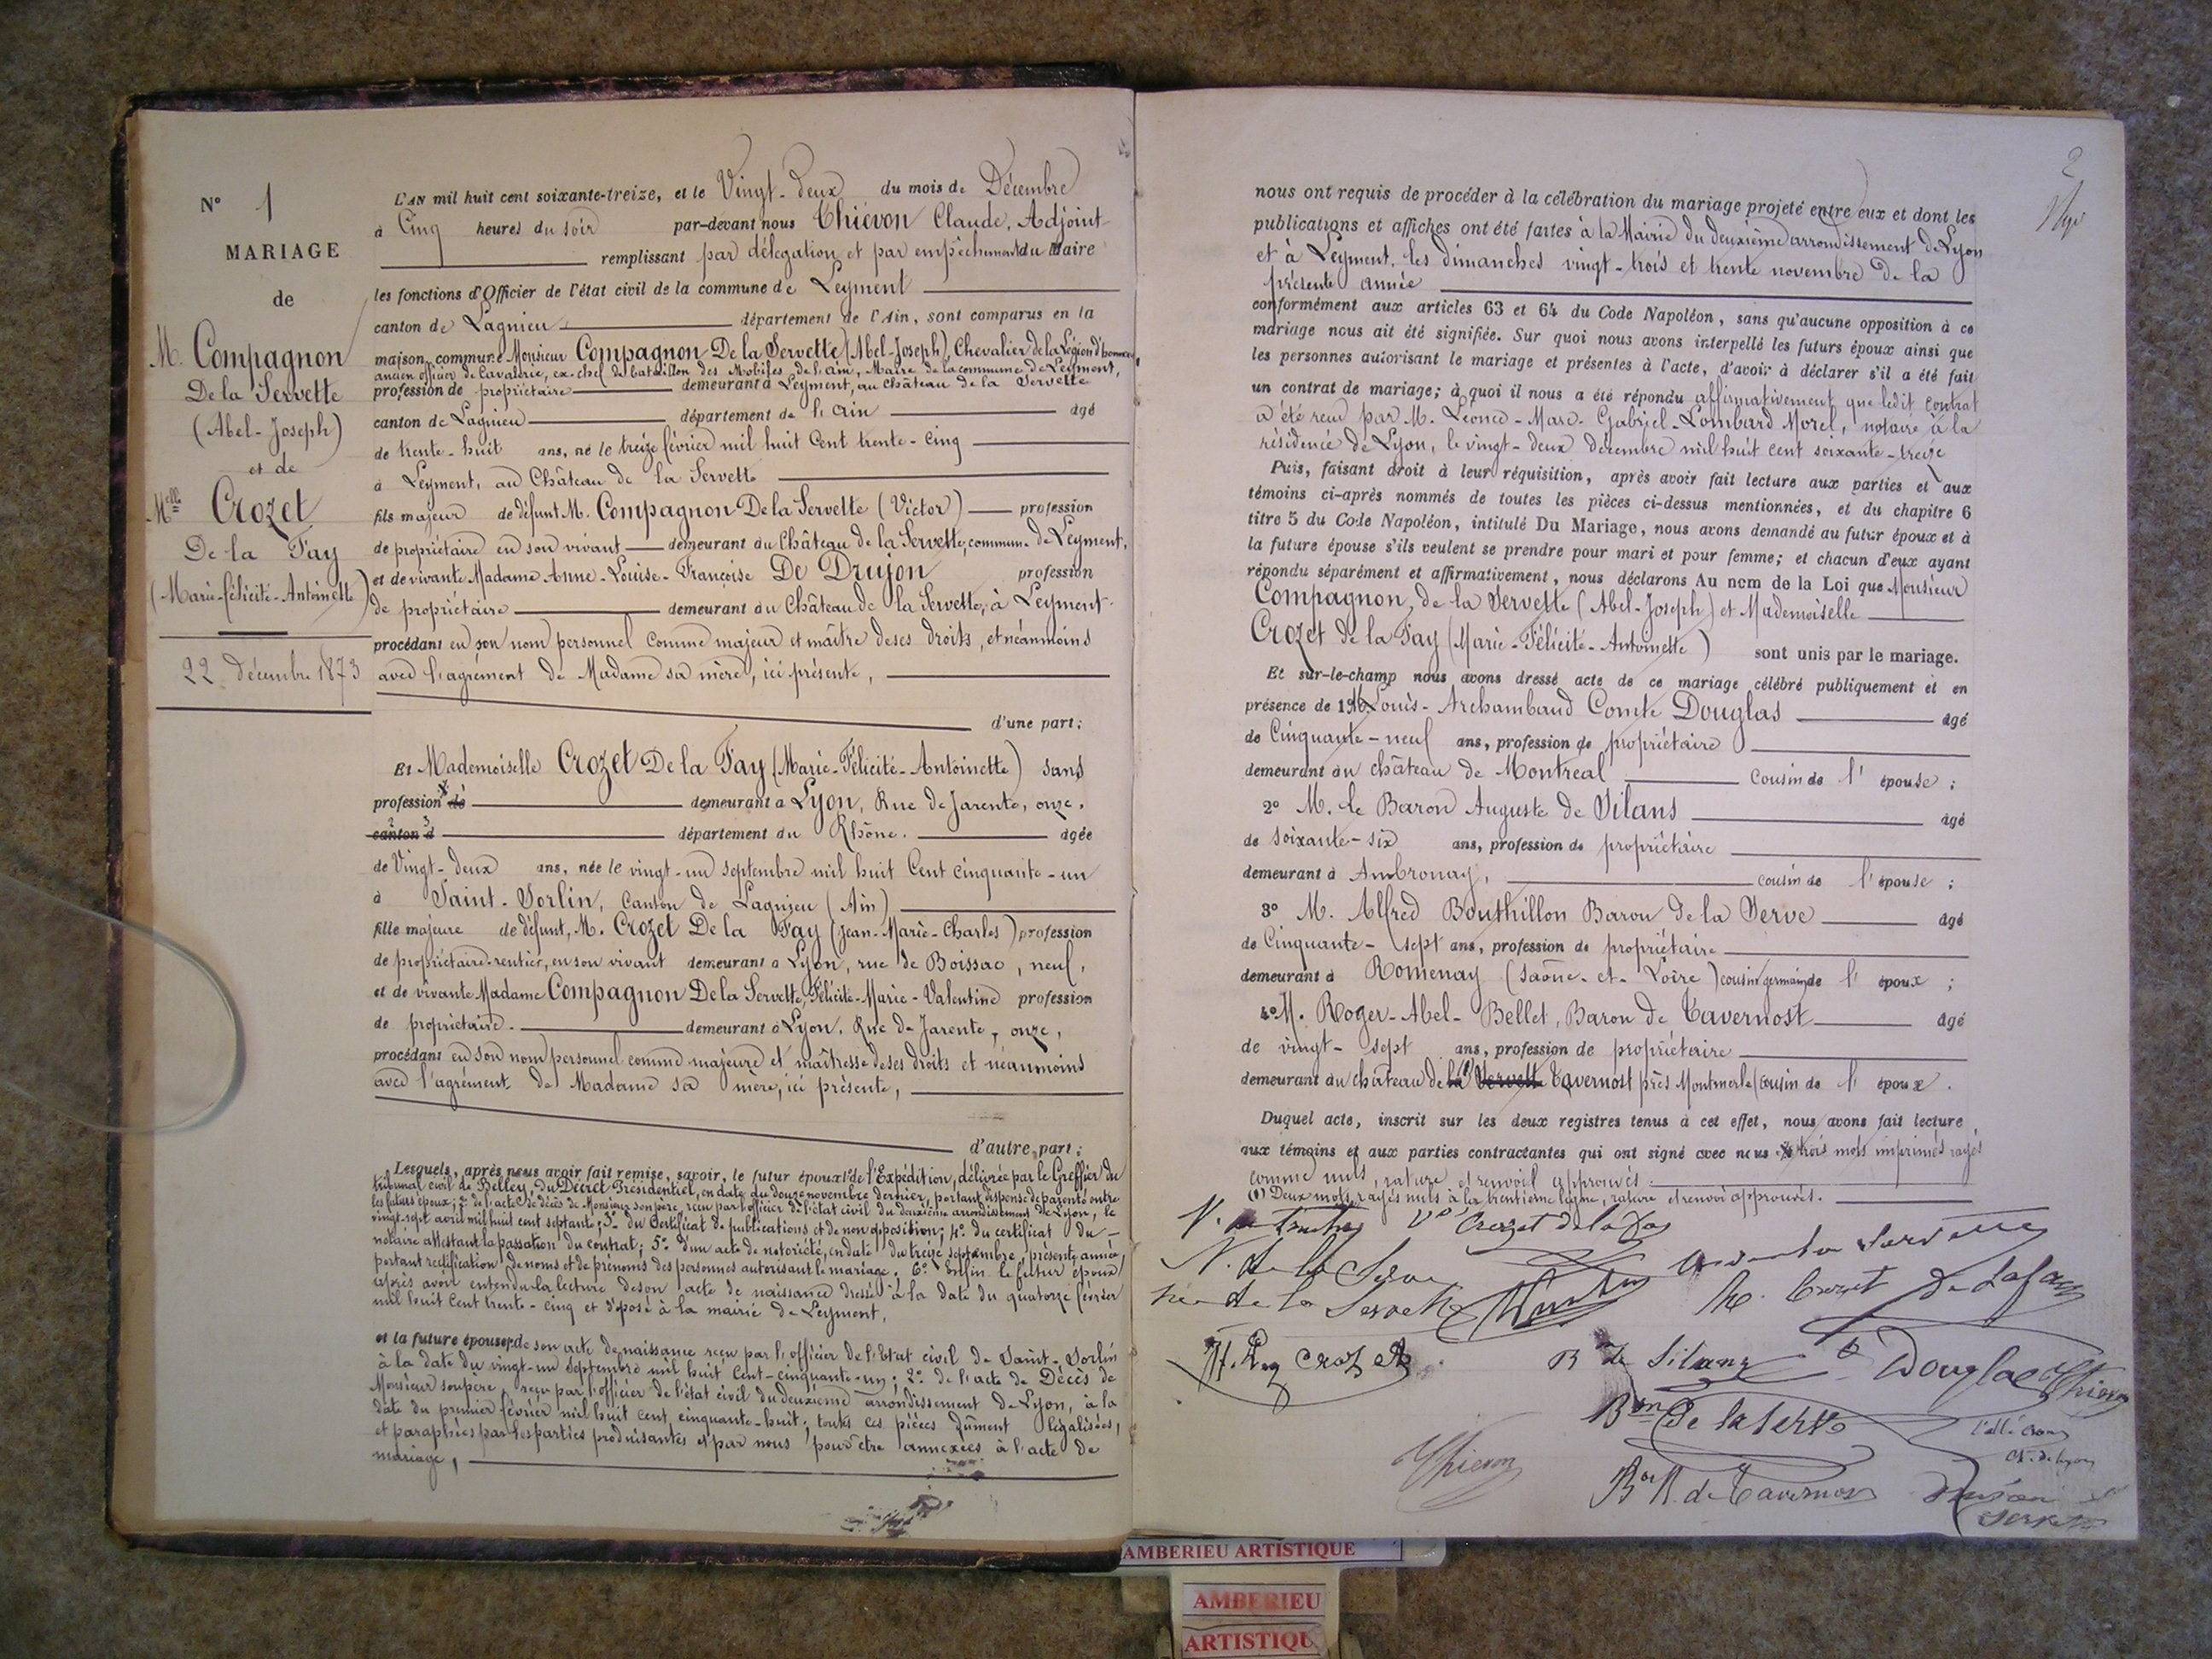 N° 1
MARIAGE
de
M. Compagnon
De la Servette
(Abel-Joseph)
et de
Melle Crozet
De la Fay
(Marie-félicité-Antoinette)
22 décembre 1873
L'AN mil huit cent soixante-treize, et le Vingt-deux du mois de Décembre
à Cinq heures du soir par-devant nous Thiévon Claude, Adjoint
remplissant par délégation et par empêchement du Maire
les fonctions d'Officier de l'état civil de la commune de Leyment
canton de Lagnieu département de l'Ain, sont comparus en la
maison commune Monsieur Compagnon De la Servette (Abel-Joseph), Chevalier de la Légion d'honneur,
ancien officier de Cavalerie, ex-chef de bataillon des Mobiles de l'ain, Maire de la commune de Leyment,
profession de propriétaire demeurant à Leyment, au château de la Servette
canton de Lagnieu département de l'ain âgé
de trente-huit ans, né le treize février mil huit Cent trente-cinq
à Leyment, au Château de la Servette
fils majeur de défunt M. Compagnon De la Servette (Victor) profession
de propriétaire en son vivant demeurant au Château de la Servette, commune de Leyment,
et de vivante Madame Anne-Louise-Françoise De Drujon profession
de propriétaire demeurant au Château de la Servette, à Leyment
procédant en son nom personnel comme majeur et maître de ses droits, et néanmoins
avec l'agrément de Madame sa mère, ici présente,
d'une part;
Et Mademoiselle Crozet De la Fay (Marie-Félicité-Antoinette) sans
profession de demeurant à Lyon, Rue de Jarente, onze,
canton d département du Rhône. âgée
de Vingt-deux ans, née le vingt-un septembre mil huit Cent cinquante-un
à Saint-Sorlin, Canton de Lagnieu (Ain)
fille majeure de défunt, M. Crozet De la Fay (Jean-Marie-Charles) profession
de propriétaire-rentier, en son vivant demeurant à Lyon, rue de Boissac, neuf,
et de vivante Madame Compagnon De la Servette, Félicité-Marie-Valentine profession
de propriétaire. demeurant à Lyon, Rue de Jarente, onze,
procédant en son nom personnel comme majeure et maîtresse de ses droits et néanmoins
avec l'agrément de Madame sa mère, ici présente,
d'autre part;
Lesquels, après nous avoir fait remise, savoir, le futur époux 1° de l'Expédition, délivrée par le Greffier du
tribunal civil de Belley, du Décret Présidentiel, en date du douze novembre dernier, portant dispense de parenté entre
les futurs époux; 2° de l'acte de décès de Monsieur son père, reçu par l'officier de l'état civil du deuxième arrondissement de Lyon, le
vingt-sept avril mil huit cent septante; 3° du Certificat de publications et de non opposition; 4° du certificat du
notaire attestant la passation du contrat; 5° d'un acte de notoriété, en date du treize septembre, présente année,
portant rectification de noms et de prénoms des personnes autorisant le mariage. 6° Enfin le futur époux
après avoir entendu la lecture de son acte de naissance dressé à la date du quatorze février
mil huit Cent trente-cinq et déposé à la mairie de Leyment,
et la future épouse 1° de son acte de naissance reçu par l'officier de l'Etat civil de Saint-Sorlin
à la date du vingt-un Septembre mil huit Cent-cinquante-un; 2° de l'acte de Décès de
Monsieur son père reçu par l'officier de l'état civil du deuxième arrondissement de Lyon, à la
date du premier février mil huit cent cinquante-huit; toutes ces pièces dûment légalisées,
et paraphées par les parties produisantes et par nous pour être annexées à l'acte de
mariage,
2
nous ont requis de procéder à la célébration du mariage projeté entre eux et dont les
publications et affiches ont été faites à la Mairie du deuxième arrondissement de Lyon
et à Leyment, les dimanches vingt-trois et trente novembre de la
présente année
conformément aux articles 63 et 64 du Code Napoléon, sans qu'aucune opposition à ce
mariage nous ait été signifiée. Sur quoi nous avons interpellé les futurs époux ainsi que
les personnes autorisant le mariage et présentes à l'acte, d'avoir à déclarer s'il a été fait
un contrat de mariage; à quoi il nous a été répondu affirmativement que ledit contrat
a été reçu par M. Léonce-Marc-Gabriel-Lombard Morel, notaire à la
résidence de Lyon, le vingt-deux décembre mil huit cent soixante-treize
Puis, faisant droit à leur réquisition, après avoir fait lecture aux parties et aux
témoins ci-après nommés de toutes les pièces ci-dessus mentionnées, et du chapitre 6
titre 5 du Code Napoléon, intitulé Du Mariage, nous avons demandé au futur époux et à
la future épouse s'ils veulent se prendre pour mari et pour femme; et chacun d'eux ayant
répondu séparément et affirmativement, nous déclarons Au nom de la Loi que Monsieur
Compagnon de la Servette (Abel-Joseph) et Mademoiselle
Crozet de la Fay (Marie-Félicité-Antoinette) sont unis par le mariage.
Et sur-le-champ nous avons dressé acte de ce mariage célébré publiquement et en
présence de 1° M. Louis-Archambaud Comte Douglas âgé
de Cinquante-neuf ans, profession de propriétaire
demeurant au château de Montreal cousin de l'épouse;
2° M. le Baron Auguste de Silans âgé
de soixante-six ans, profession de propriétaire
demeurant à Ambronay, cousin de l'épouse;
3° M. Alfred Bouthillon Baron de la Serve âgé
de Cinquante-sept ans, profession de propriétaire
demeurant à Romenay (Saône-et-Loire) cousin germain de l'époux;
4° M. Roger-Abel-Bellet, Baron de Tavernost âgé
de vingt-sept ans, profession de propriétaire
demeurant au château de la (1) Servette Tavernost près Montmerle (cousin de l'époux.
Duquel acte, inscrit sur les deux registres tenus à cet effet, nous avons fait lecture
aux témoins et aux parties contractantes qui ont signé avec nous trois mots imprimés rayés
comme nuls, rature et renvoi approuvés.
(1) Deux mots rayés nuls à la trentième ligne, rature et renvoi approuvés.
Ve Crozet de la Fay
N. de la Serve
de la Servette
M. Crozet de Lafay
Crozet
Bon de Silans
Cte Douglas
Thiévon
Bon de la Serve
Thiévon
Bon R. de Tavernost
Drujon
Servette
AMBERIEU ARTISTIQUE
AMBERIEU
ARTISTIQU